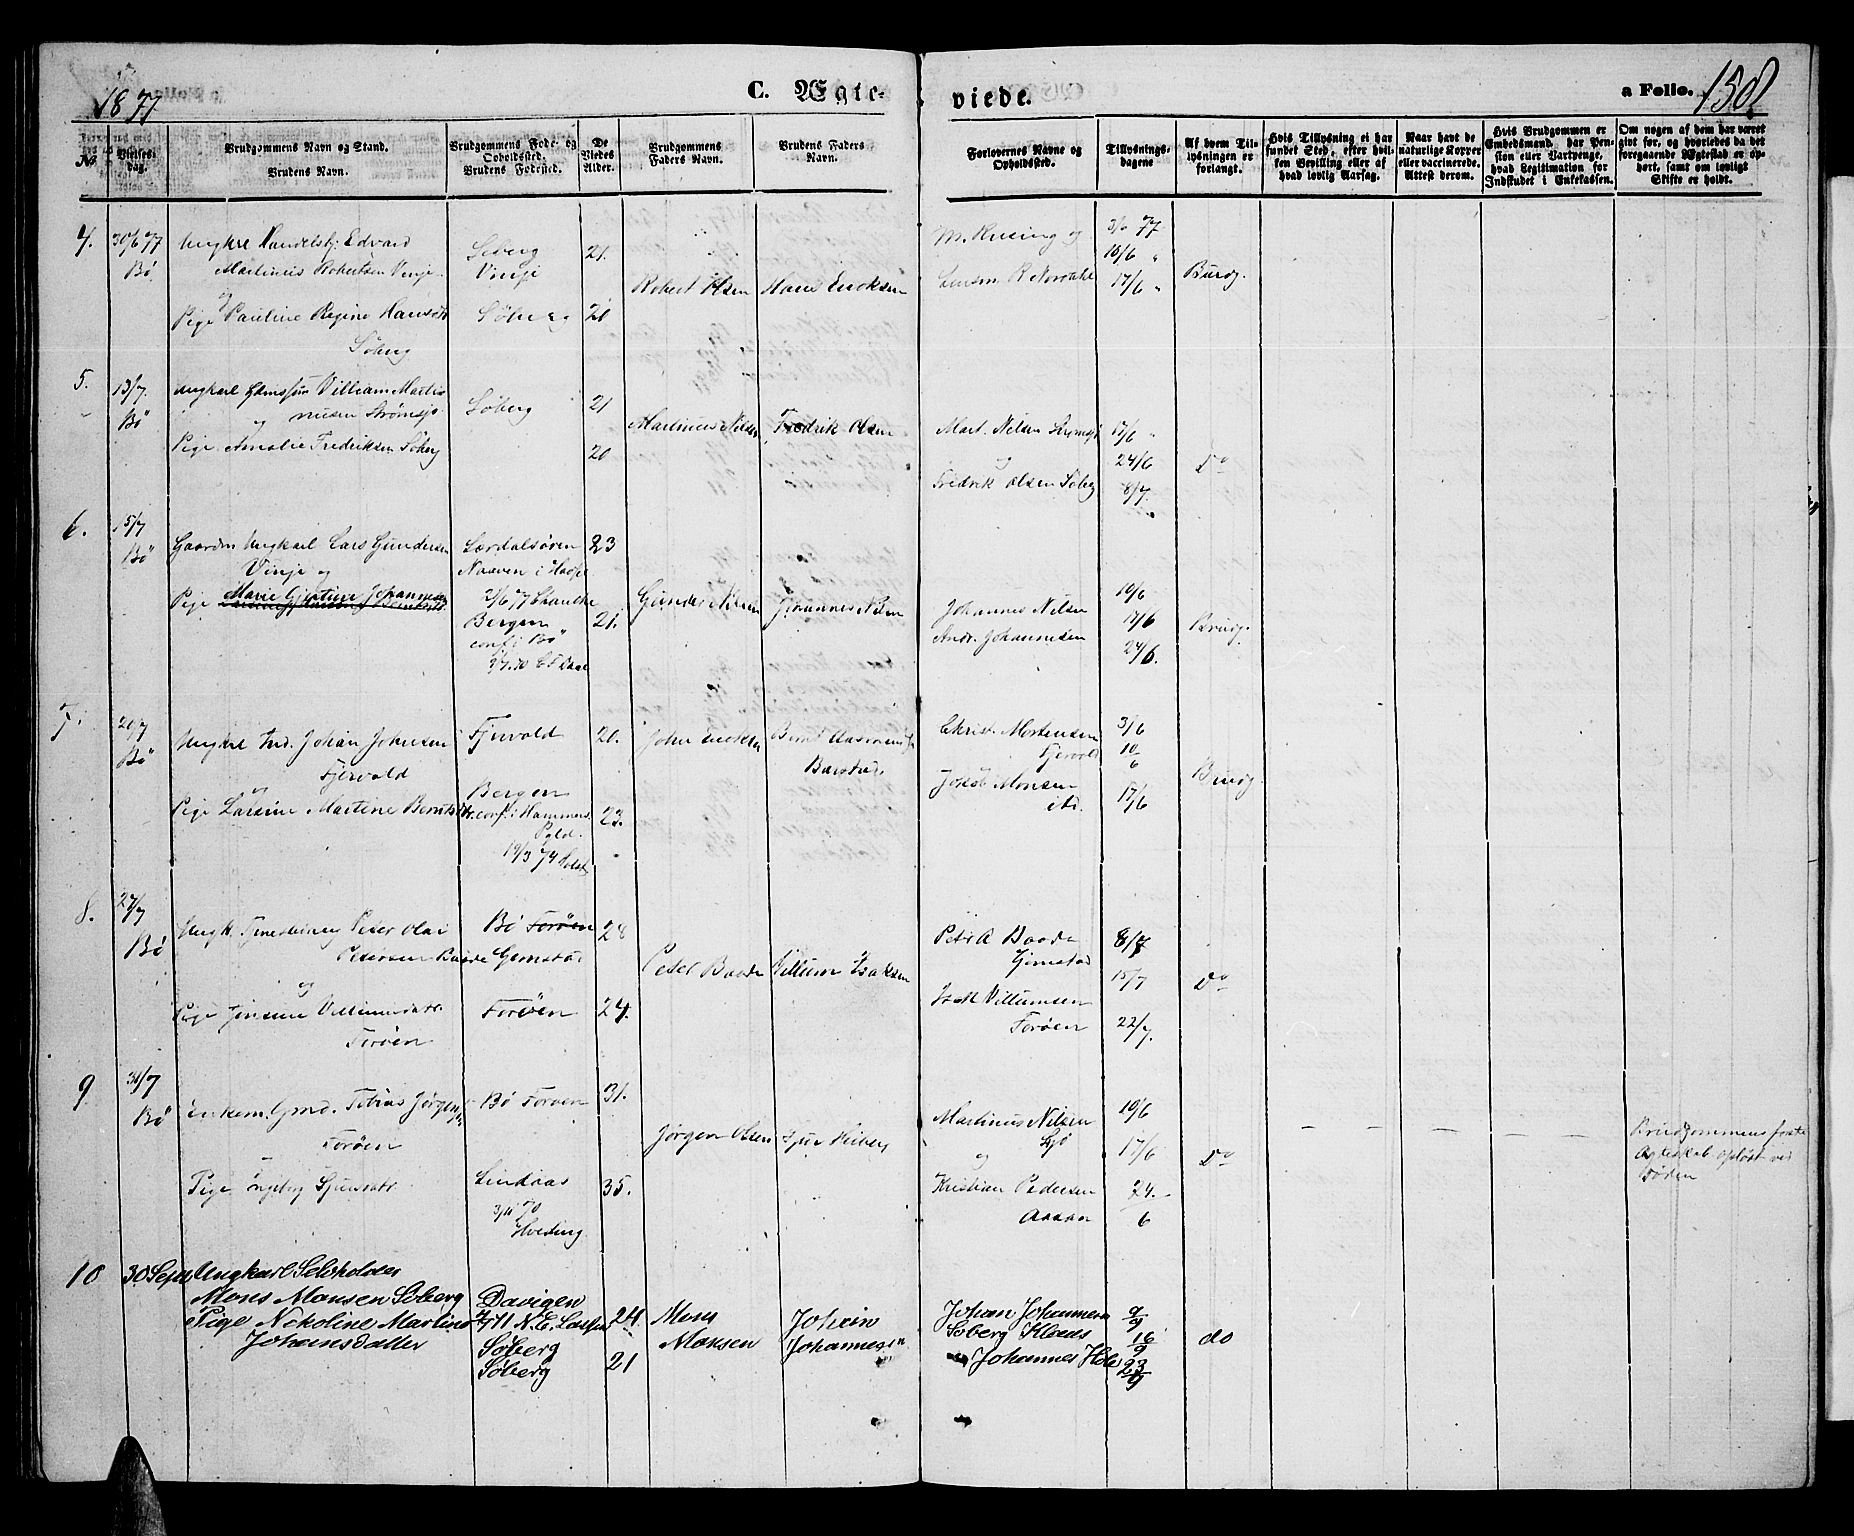 1877
C. Ægte-
viede.
a Folio. 150
No.
Vielses-
dag.
Brudgommens Navn og Stand.
Brudens Navn.
Brudgommens Føde- og
Opholdssted.
Brudens Fødested.
De
Viedes
Alder.
Brudgommens
Faders Navn.
Brudens Faders
Navn.
Forlovernes Navne og
Opholdssted.
Tillysnings-
dagene
Af hvem Til-
lysningen er
forlangt.
Hvis Tillysning ei har
fundet Sted, efter hvil-
ken Bevilling eller af
hvad lovlig Aarsag.
Naar havt de
naturlige Kopper
eller vaccinerede.
Attest derom.
Hvis Brudgommen er
Embedsmand, har Pen-
sion eller Vartpenge,
hvad Legitimation for
Indskudet i Enkekassen.
Om nogen af dem har været
givt før, og hvorledes da det
foregaaende Ægteskab er op-
hørt, samt om lovligt
Skifte er holdt.
4.
30/6 77
Bø
Ungkrl Handelsbj. Edvard
Martinus Robertsen Vinje
og
Pige Pauline Regine Hansdtr
Søberg
Søberg
Vinje
Søberg
21.
21
Robert Olsen
Hans Ericksen
M. Rusing og
Lensm R Nordahl
3/6 77
10/6 "
17/6 "
Brudg.
5.
13/7.
Bø
Ungkarl Villiam Marti
nusen Strømsjø
og
Pige Amalie Fredriksen Søberg
Søberg
21
20
Martinus Nilsen
Fredrik Olsen
Mart. Nilsen Strømsjø
og
Fredrik Olsen Søberg
17/6
24/6
8/7.
Do
6.
15/7
Bø
Gaardm Ungkarl Lars Gundersen
Vinje og
Pige Marie Gjertine Johannesen
Lærdalsøren
Naaven i Hadsel
2/6 77
Bergen
conf i Bø
23
21.
Gunder Nilsen
Johannes Nilsen
Johannes Nilsen
Andr. Johannesen
10/6
17/6
24/6.
Brudg.
7.
20/7
Bø
Ungkrl Ind. Johan Johnsen
Fjervold
og
Pige Larsine Martine Berntsdtr.
Fjervold
Bergen
conf. i Hammers
Pgld.
19/3 74
20.
23.
John Ericksen
Bernt
Christ. Mortensen
Fjervold
Jakob Monsen
ibd.
3/6
10/6
17/6
Brudg.
8.
27/7
Bø
Ungk. Peter Olai
Petersen Baade
og
Pige Jensine Villumsdatr.
Forøen
Bø Forøen
Gimstad
Forøen
28
24.
Peter Baade
Villum Isaksen
Peter A Baade
Gimstad
Isak Villumsen
Forøen
8/7
15/7
22/7.
Do
9
31/7
Bø
Enkem. Gmd. Tobias Jørgens.
Forøen
og
Pige Ingeborg Sjursdatr.
Bø Forøen
Lindaas
70
Hvesing
31.
35.
Jørgen Olsen
Sjur
Martinus Nilsen
Sjø
og
Kristian Pedersen
10/6
17/6
24/6
Do
– – – –
Brudgommens første
Ægteskab opløst ved
Døden
10
30 Sept
Ungkarl Selvholder
Mons Monsen Søberg
Pige Nekoline Martine
Johansdatter
Davigen
Søberg
Søberg
24.
21
Mons
Monsen
Johan
Johannesen
Johan Johannesen
Søberg
Johannes
9/9
16/9
23/9
do